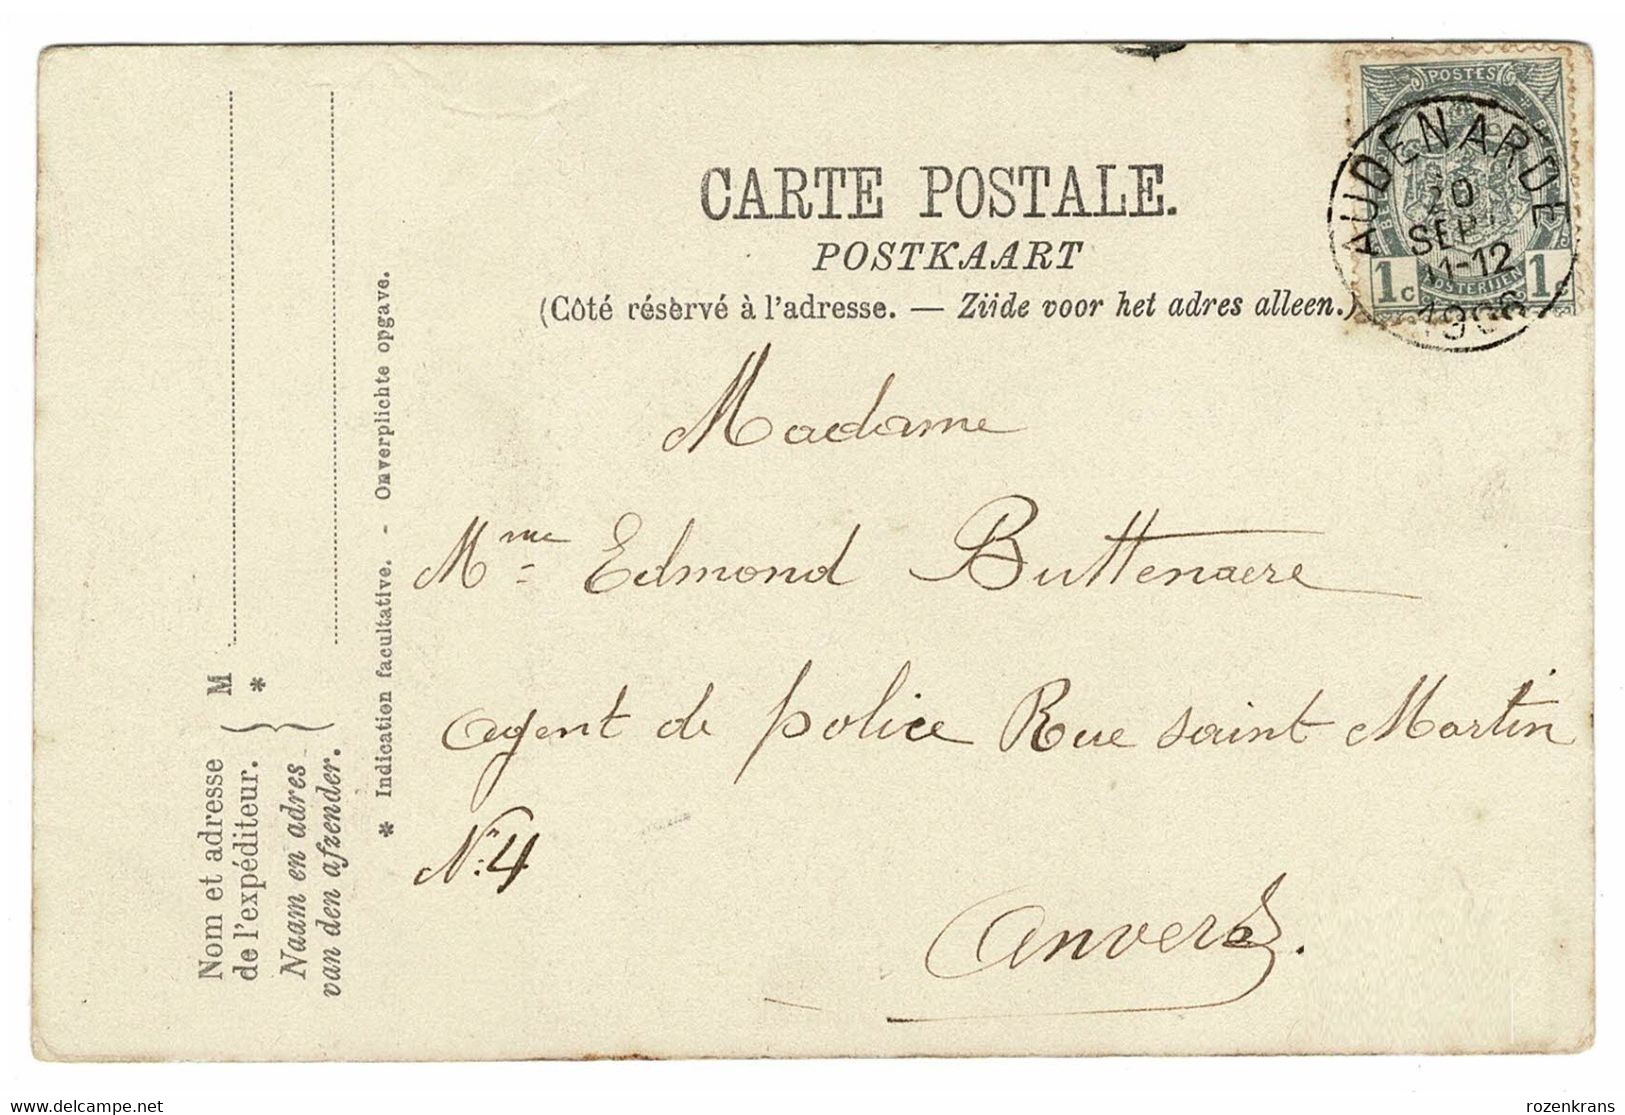 CARTE POSTALE.
POSTKAART
(Côté réservé à l'adresse. — Zijde voor het adres alleen.)
POSTES
1c 1c
POSTERIJEN
AUDENARDE
20
SEPT
11-12
Madame
Mme Edmond Buttenaere
agent de police Rue saint Martin
No 4
Anvers.
Nom et adresse
de l'expéditeur.
Naam en adres
van den afzender.
M
*
* Indication facultative. - Onverplichte opgave.
www.delcampe.net
rozenkrans